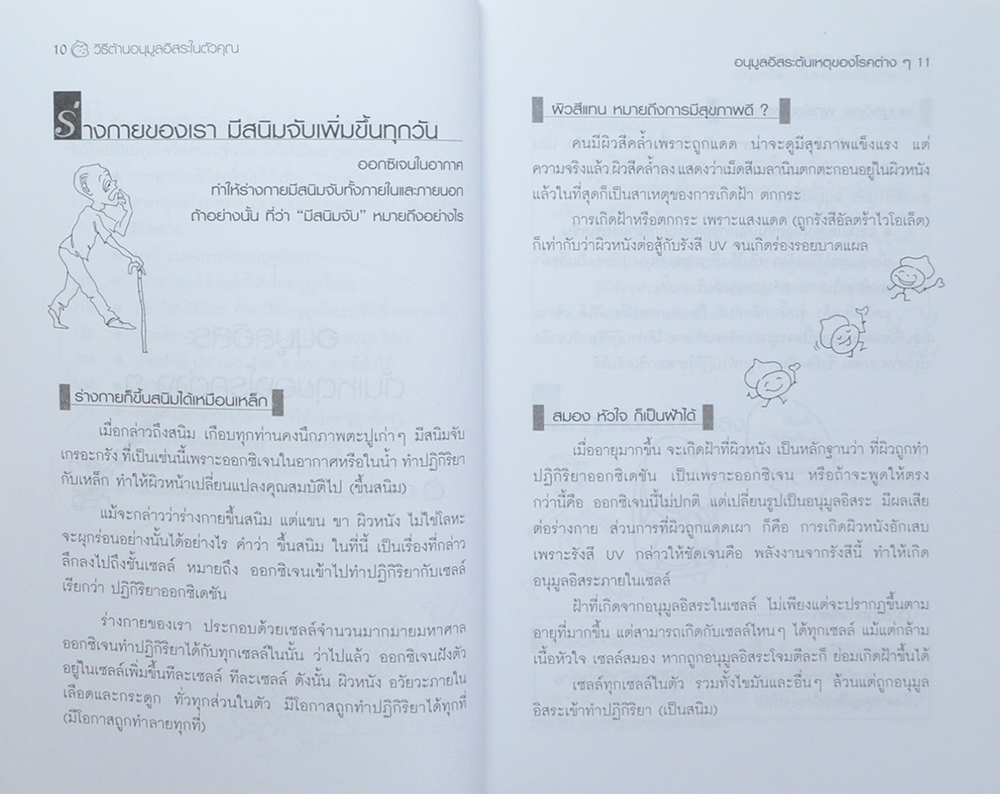 10 วิธีต้านอนุมูลอิสระในตัวคุณ
ร่างกายของเรา มีสนิมจับเพิ่มขึ้นทุกวัน
ออกซิเจนในอากาศ
ทำให้ร่างกายมีสนิมจับทั้งภายในและภายนอก
ถ้าอย่างนั้น ที่ว่า “มีสนิมจับ” หมายถึงอย่างไร
ร่างกายก็ขึ้นสนิมได้เหมือนเหล็ก
เมื่อกล่าวถึงสนิม เกือบทุกท่านคงนึกภาพตะปูเก่าๆ มีสนิมจับ
เกรอะกรัง ที่เป็นเช่นนี้เพราะออกซิเจนในอากาศหรือในน้ำ ทำปฏิกิริยา
กับเหล็ก ทำให้ผิวหน้าเปลี่ยนแปลงคุณสมบัติไป (ขึ้นสนิม)
แม้จะกล่าวว่าร่างกายขึ้นสนิม แต่แขน ขา ผิวหนัง ไม่ใช่โลหะ
จะผุกร่อนอย่างนั้นได้อย่างไร คำว่า ขึ้นสนิม ในที่นี้ เป็นเรื่องที่กล่าว
ลึกลงไปถึงชั้นเซลล์ หมายถึง ออกซิเจนเข้าไปทำปฏิกิริยากับเซลล์
เรียกว่า ปฏิกิริยาออกซิเดชัน
ร่างกายของเรา ประกอบด้วยเซลล์จำนวนมากมายมหาศาล
ออกซิเจนทำปฏิกิริยาได้กับทุกเซลล์ในนั้น ว่าไปแล้ว ออกซิเจนฝังตัว
อยู่ในเซลล์เพิ่มขึ้นทีละเซลล์ ทีละเซลล์ ดังนั้น ผิวหนัง อวัยวะภายใน
เลือดและกระดูก ทั่วทุกส่วนในตัว มีโอกาสถูกทำปฏิกิริยาได้ทุกที่
(มีโอกาสถูกทำลายทุกที่)
อนุมูลอิสระต้นเหตุของโรคต่าง ๆ 11
ผิวสีแทน หมายถึงการมีสุขภาพดี ?
คนมีผิวสีคล้ำเพราะถูกแดด น่าจะดูมีสุขภาพแข็งแรง แต่
ความจริงแล้ว ผิวสีคล้ำลง แสดงว่าเม็ดสีเมลานินตกตะกอนอยู่ในผิวหนัง
แล้วในที่สุดก็เป็นสาเหตุของการเกิดฝ้า ตกกระ
การเกิดฝ้าหรือตกกระ เพราะแสงแดด (ถูกรังสีอัลตร้าไวโอเล็ต)
ก็เท่ากับว่าผิวหนังต่อสู้กับรังสี UV จนเกิดร่องรอยบาดแผล
สมอง หัวใจ ก็เป็นฝ้าได้
เมื่ออายุมากขึ้น จะเกิดฝ้าที่ผิวหนัง เป็นหลักฐานว่า ที่ผิวถูกทำ
ปฏิกิริยาออกซิเดชัน เป็นเพราะออกซิเจน หรือถ้าจะพูดให้ตรง
กว่านี้คือ ออกซิเจนนี้ไม่ปกติ แต่เปลี่ยนรูปเป็นอนุมูลอิสระ มีผลเสีย
ต่อร่างกาย ส่วนการที่ผิวถูกแดดเผา ก็คือ การเกิดผิวหนังอักเสบ
เพราะรังสี UV กล่าวให้ชัดเจนคือ พลังงานจากรังสีนี้ ทำให้เกิด
อนุมูลอิสระภายในเซลล์
ฝ้าที่เกิดจากอนุมูลอิสระในเซลล์ ไม่เพียงแต่จะปรากฏขึ้นตาม
อายุที่มากขึ้น แต่สามารถเกิดกับเซลล์ไหนๆ ได้ทุกเซลล์ แม้แต่กล้าม
เนื้อหัวใจ เซลล์สมอง หากถูกอนุมูลอิสระโจมตีละก็ ย่อมเกิดฝ้าขึ้นได้
เซลล์ทุกเซลล์ในตัว รวมทั้งไขมันและอื่นๆ ล้วนแต่ถูกอนุมูล
อิสระเข้าทำปฏิกิริยา (เป็นสนิม)